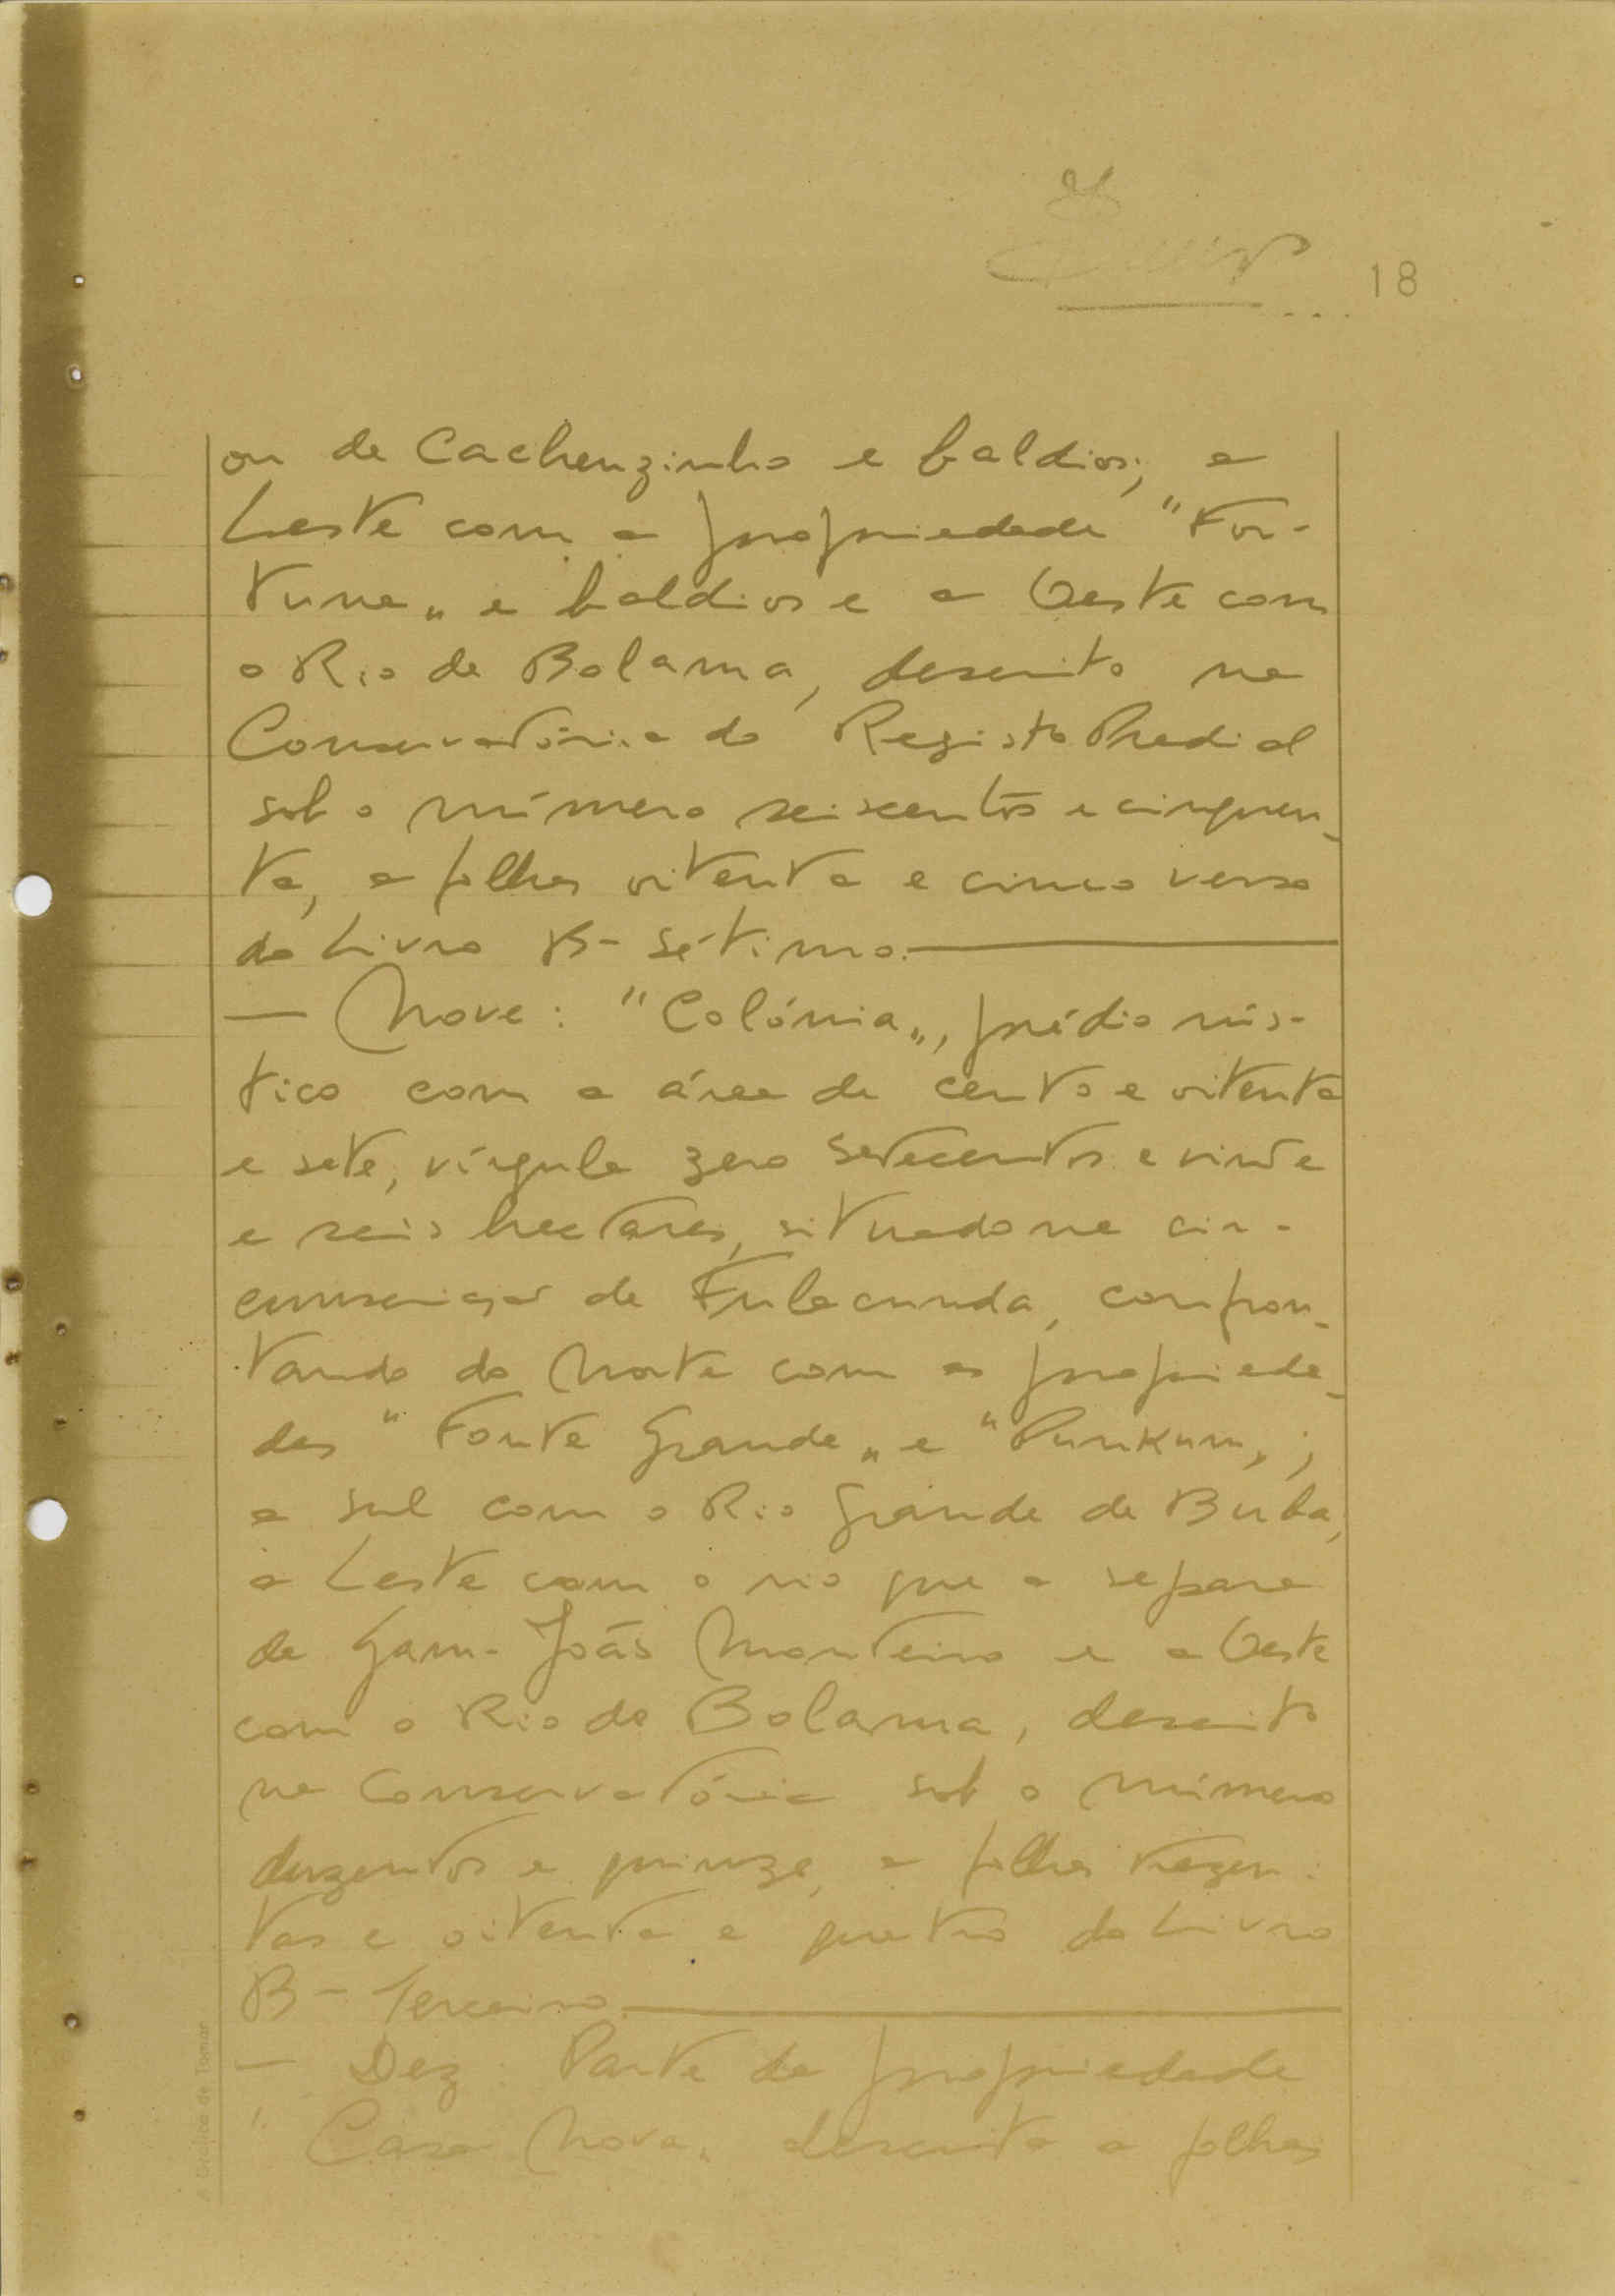 18
ou de Cacheuzinho e baldios; a
Leste com a propriedade "For-
tuna" e baldios e a Oeste com
o Rio de Bolama, descrito na
Conservatória do Registo Predial
sob o número seiscentos e cinquen-
ta, a folhas oitenta e cinco verso
do Livro B- sétimo.
— Nove: "Colónia", prédio rús-
tico com a área de cento e oitenta
e sete, vírgula zero setecentos e vinte
e seis hectares, situado na cir-
cunscrição de Fulacunda, confron-
tando do Norte com as proprieda-
des "Fonte Grande" e "Punkum";
a sul com o Rio Grande de Buba,
a Leste com o rio que a separa
de Gam-João Monteiro e a Oeste
com o Rio de Bolama, descrito
na Conservatória sob o número
duzentos e quinze, a folhas trezen-
tas e oitenta e quatro do Livro
B- Terceiro.
— Dez: Parte da propriedade
"Casa Nova" descrita a folhas
A Gráfica de Tomar